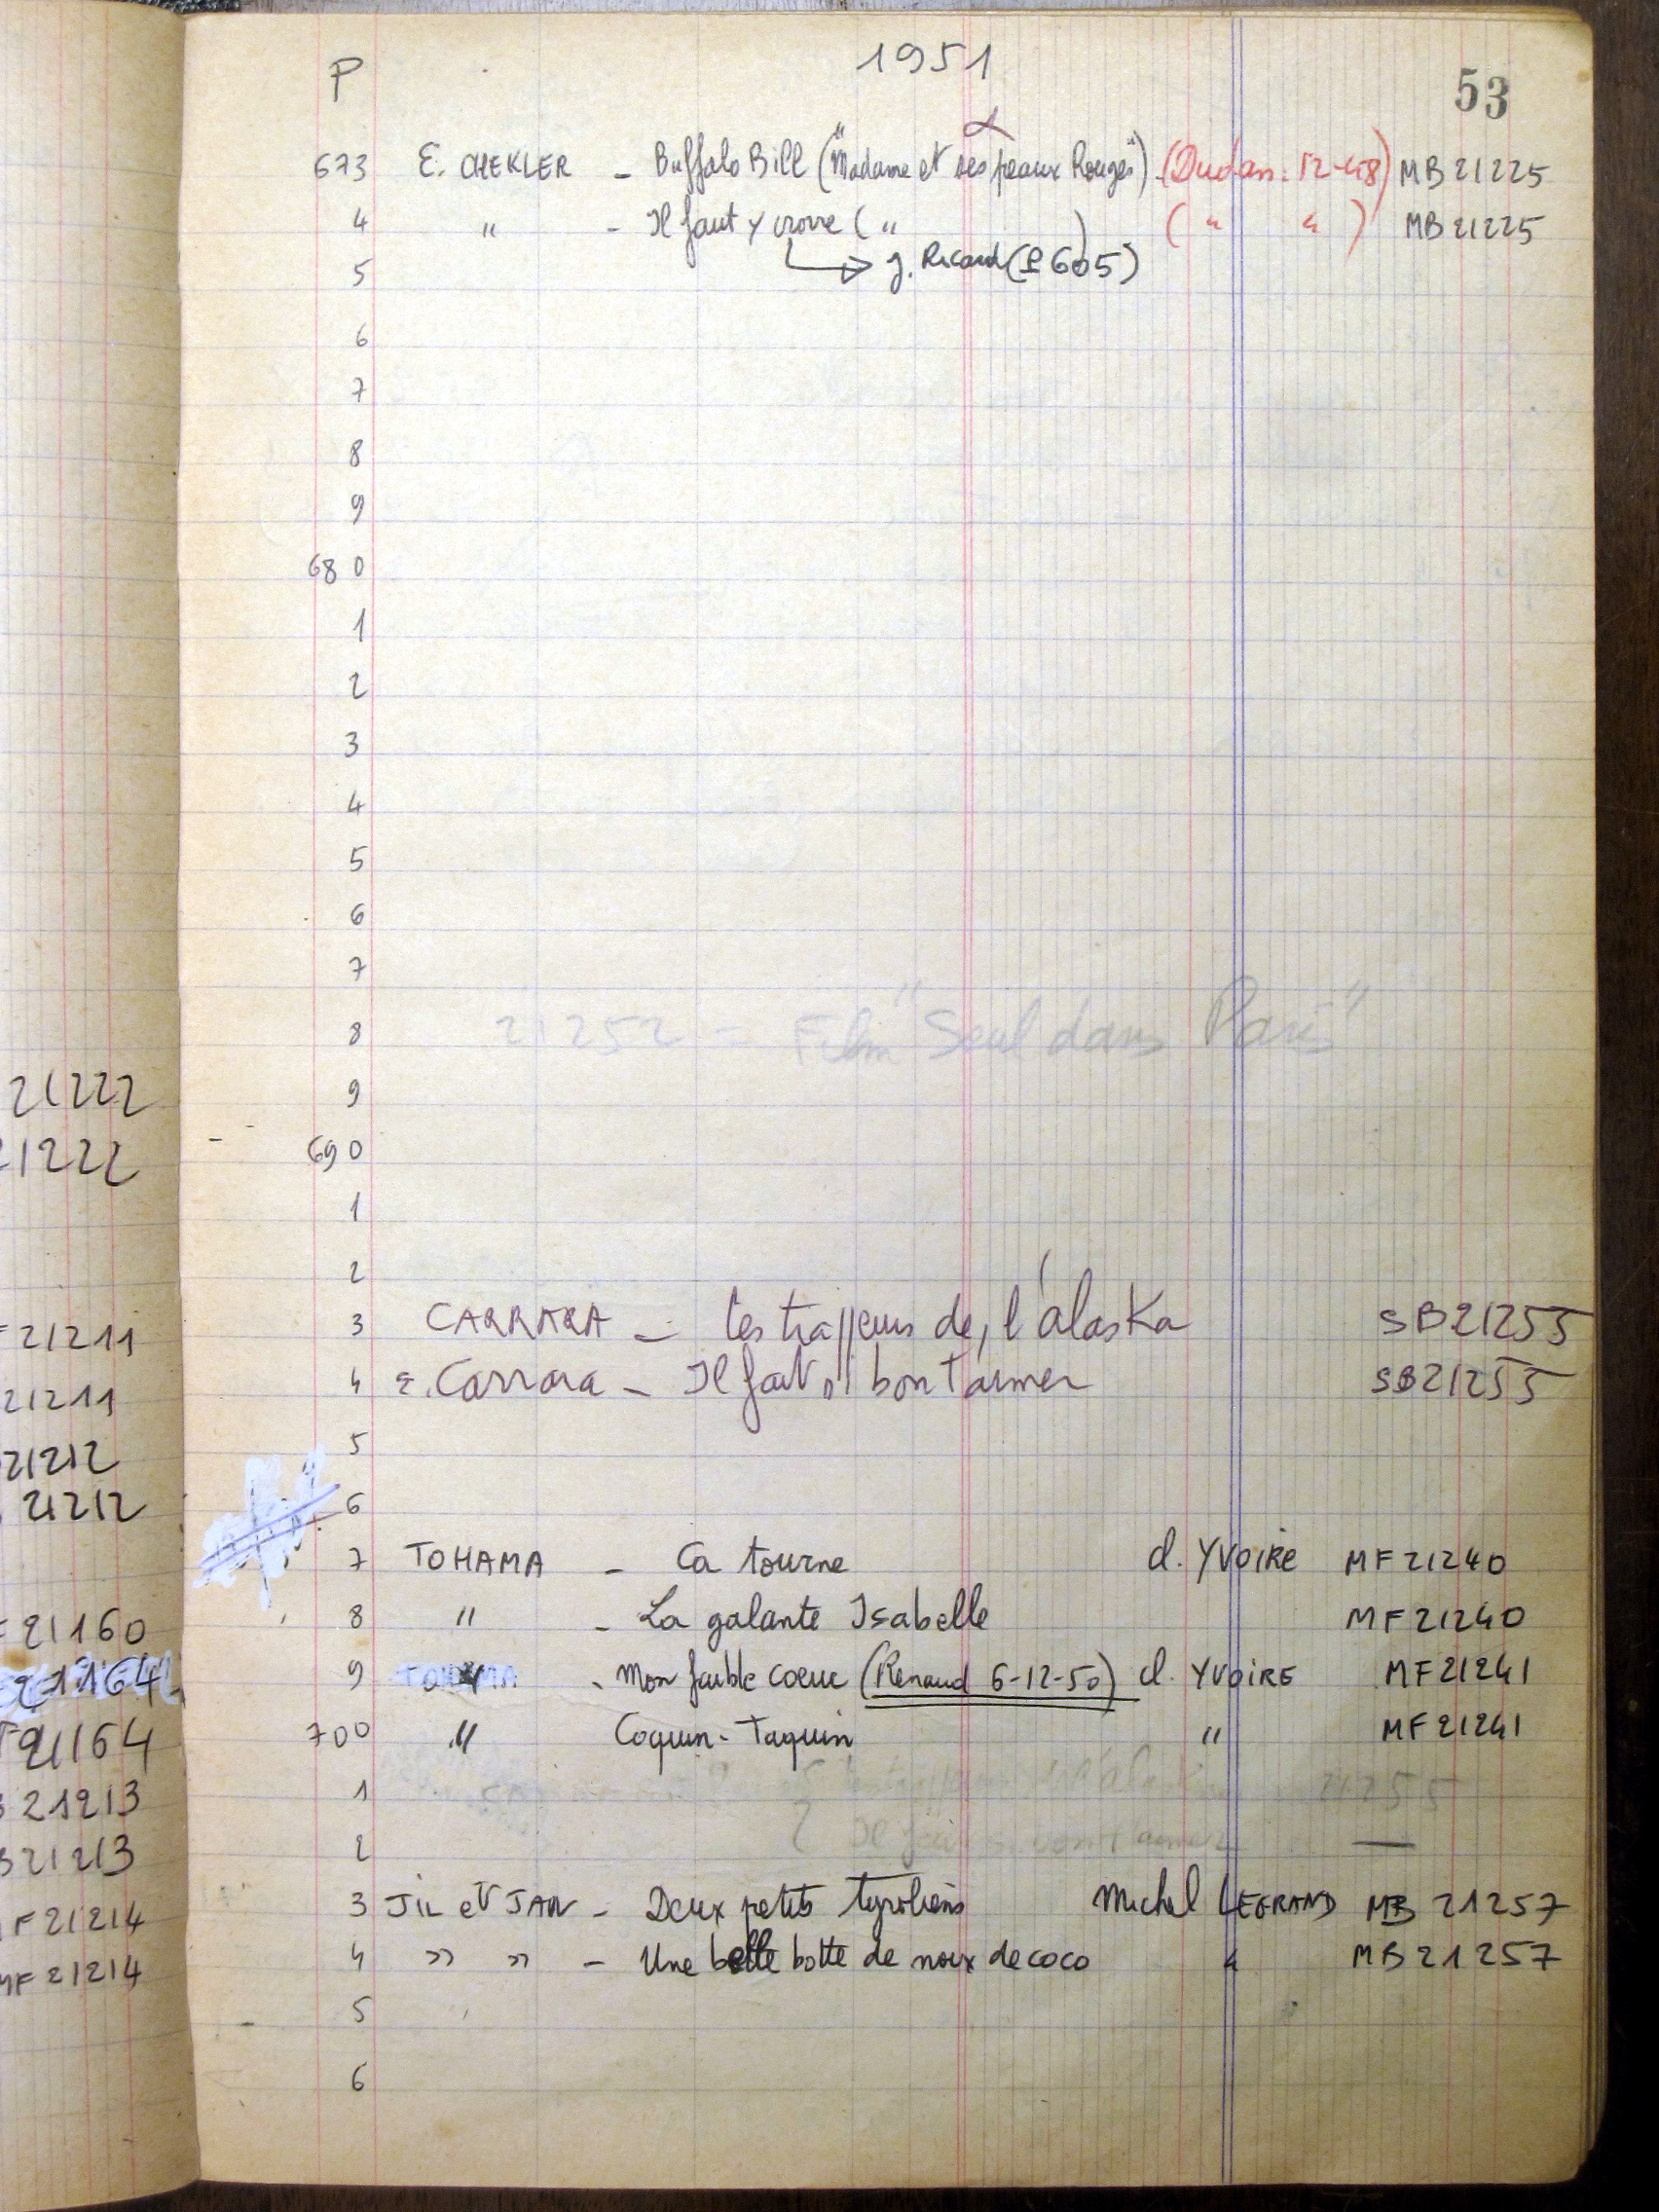 P 1951 53
673 E. CHEKLER - Buffalo Bill ("Madame et ses peaux Rouges") (Dudan. 12-48) MB 21225
4 " - Il faut y croire ( " ) ( " " ) MB 21225
5 → J. Ricard (P 605)
6
7
8
9
680
1
2
3
4
5
6
7
8 21252 = Film "Seul dans Paris"
9
690
1
2
3 CARRARA - Les trappeurs de l'alaska SB21255
4 E. Carrara - Il fait si bon t'aimer SB21255
5
6
7 TOHAMA - Ca tourne d. YVOIRE MF21240
8 " - La galante Isabelle MF21240
9 TOHAMA - Mon faible coeur (Renaud 6-12-50) d. YVOIRE MF21241
700 " Coquin-Taquin " MF21241
1 21255
2 Il fait si bon t'aimer —
3 JIL et JAN - Deux petits tyroliens Michel LEGRAND MB 21257
4 " " - Une belle botte de noix de coco " MB21257
5
6
21222
21222
21211
21211
21212
21212
21160
21164
21164
21213
21213
F21214
MF21214